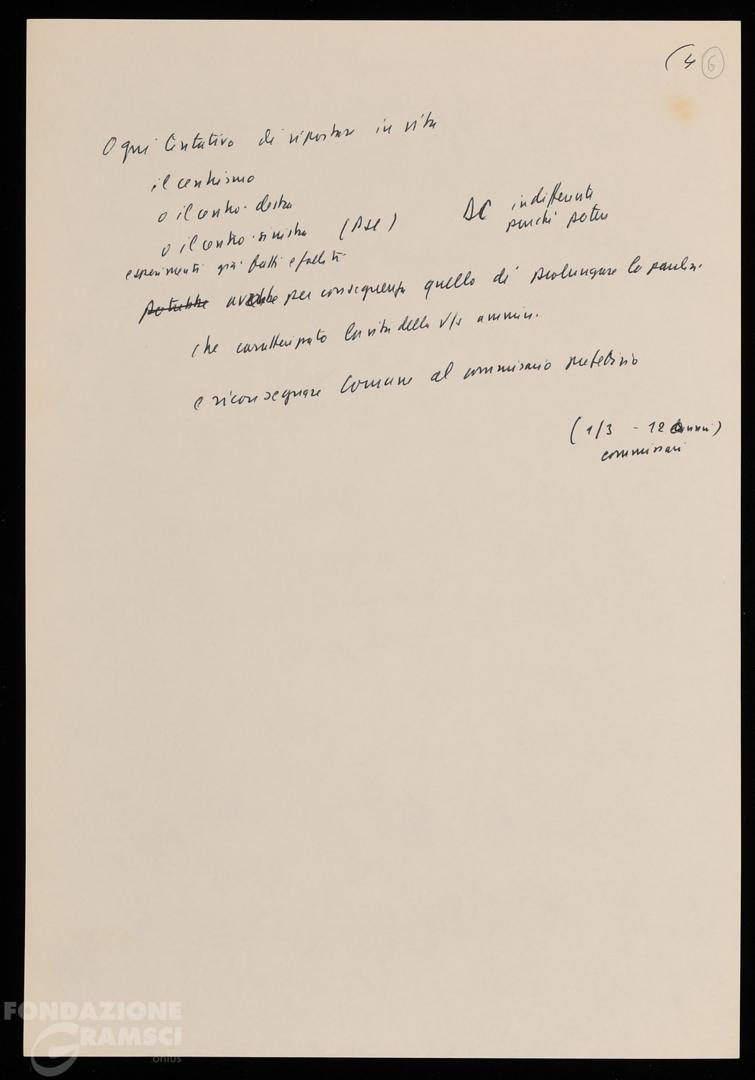 (4 6
Ogni tentativo di riportare in vita
il centrismo
o il centro-destra
o il centro-sinistra (PSI)
DC indifferente
purché potere
esperimenti già fatti e falliti
potrebbe avrebbe per conseguenza quello di prolungare la paralisi
che caratterizzato la vita della v/s ammin.
e riconsegnare Comune al commissario prefettizio
(1/3 - 12 anni)
commissari
FONDAZIONE
GRAMSCI
onlus